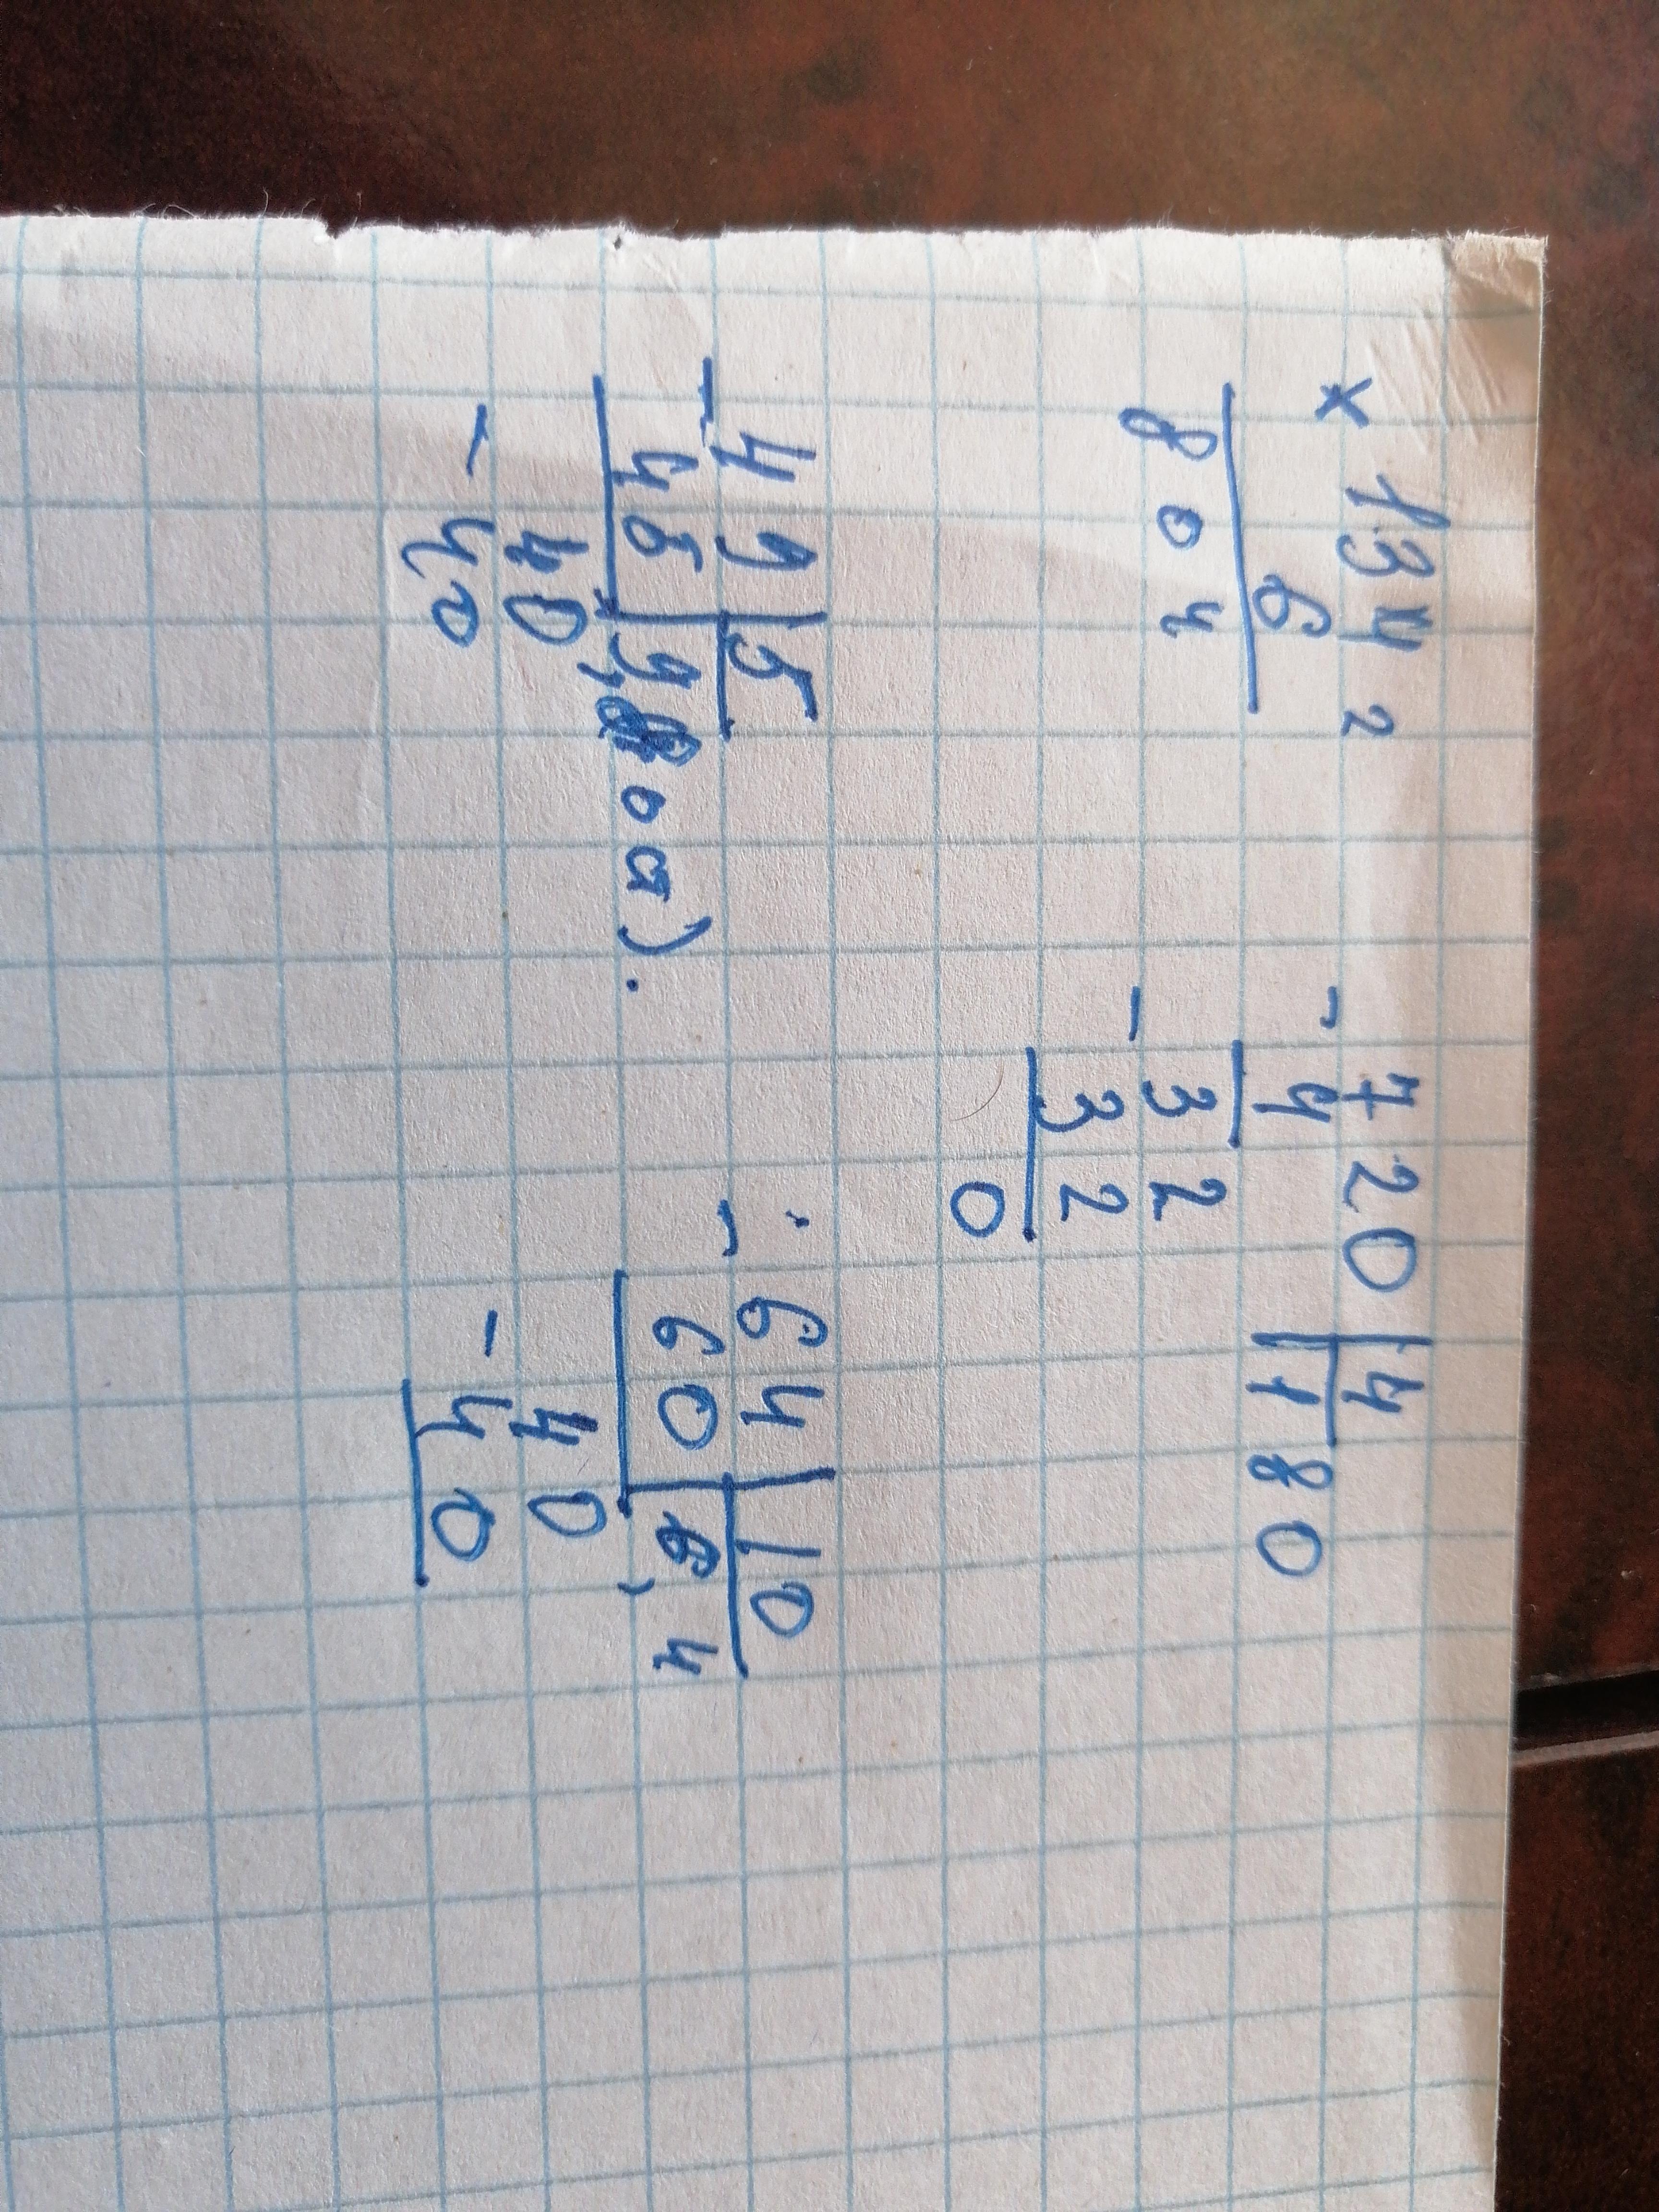 × 134 2
6
804
- 720 | 4
4 | 180
- 32
32
0
- 49 | 5
45 | 9,8 ост).
40
- 40
- 64 | 10
60 | 6,4
40
- 40